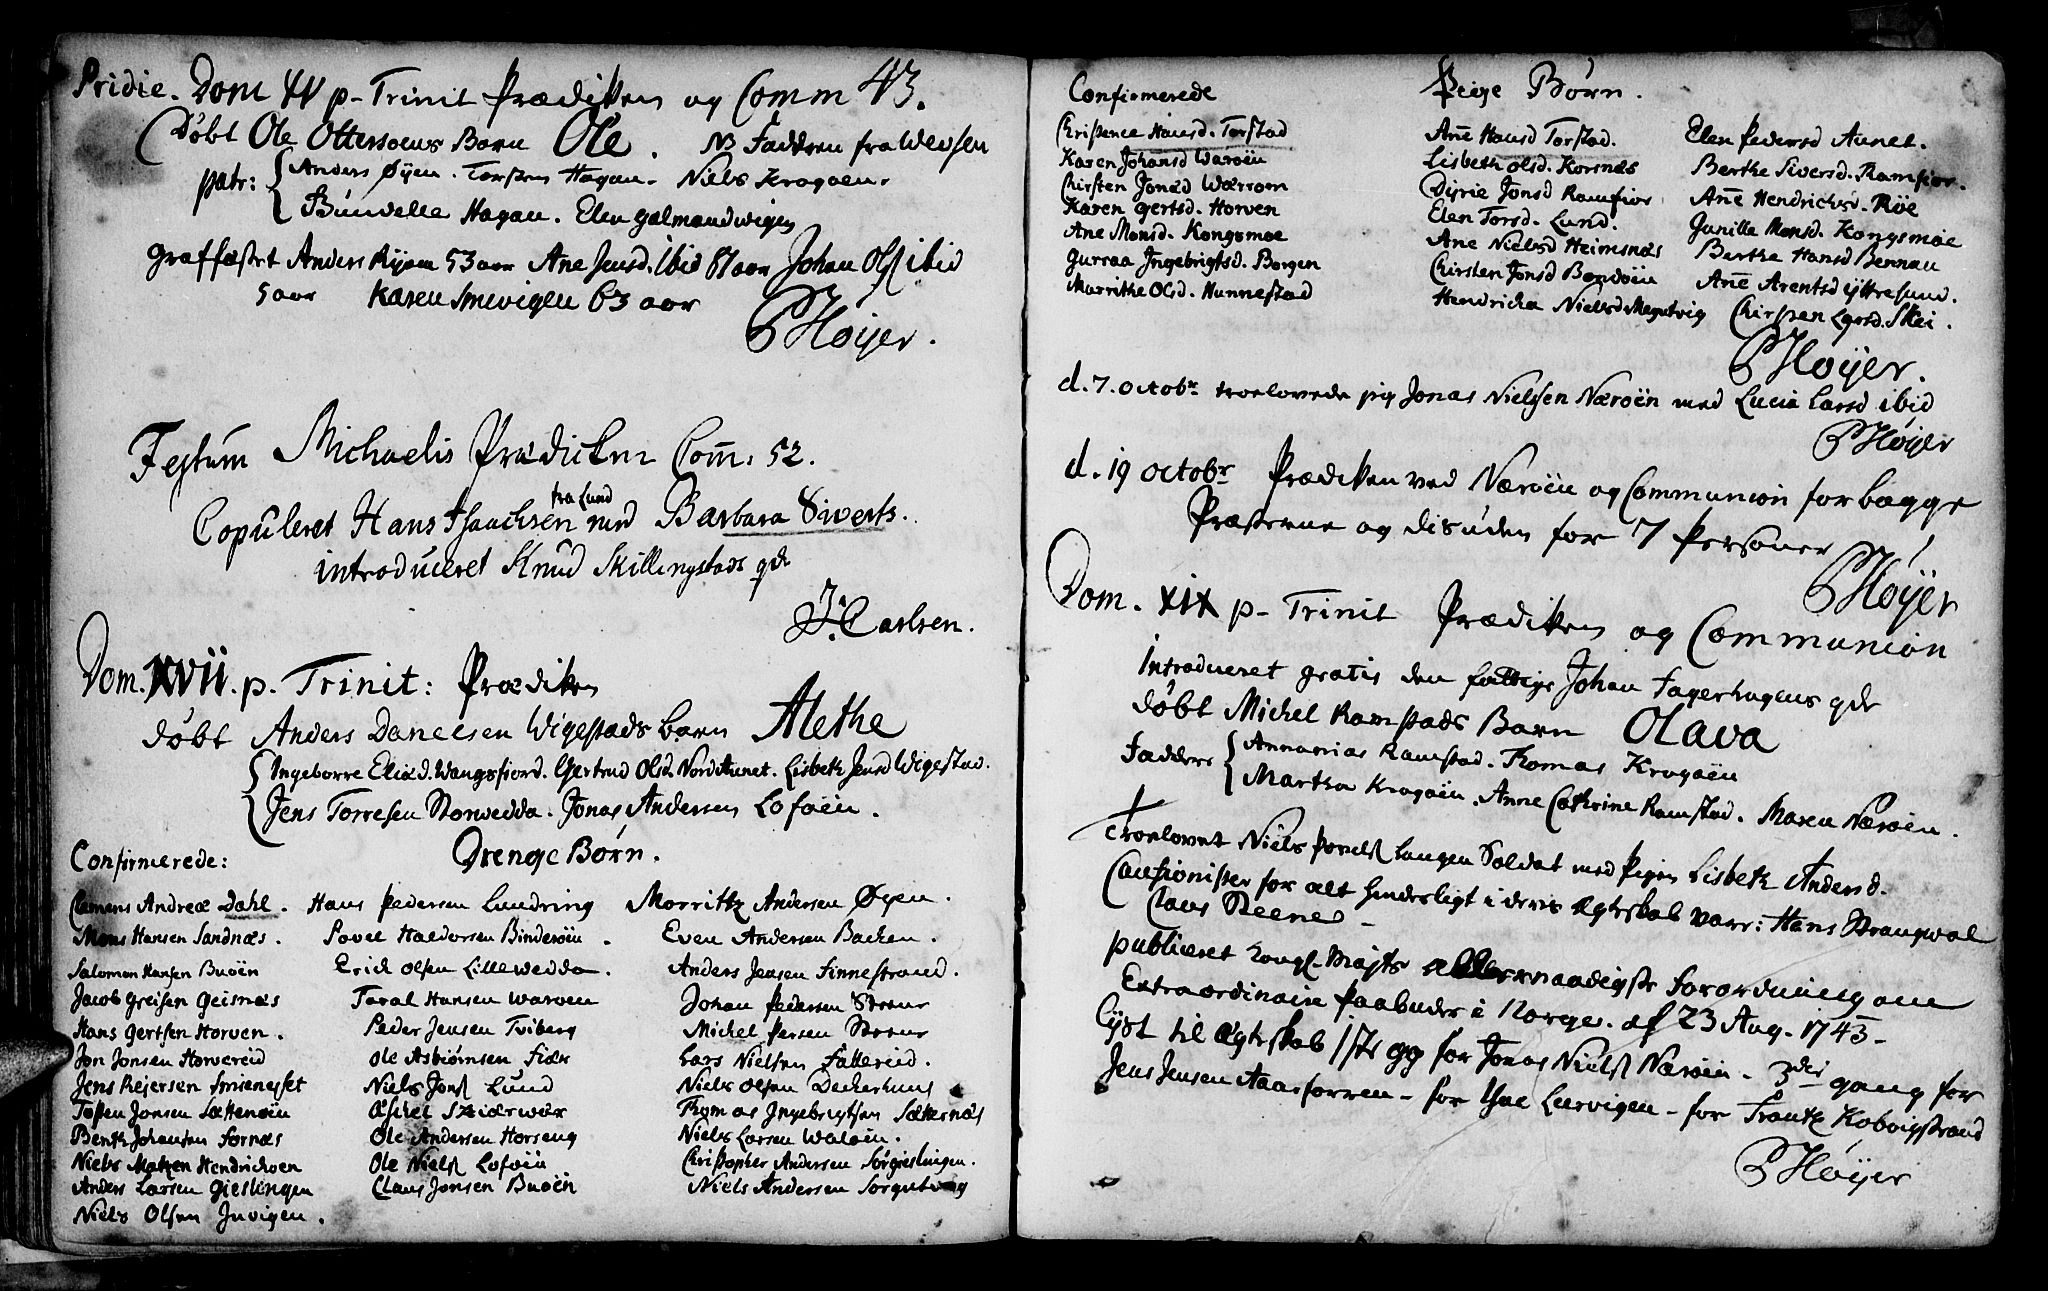 Pridie. Dom p- Trinit Prædiken og Comm 43.
Døbt Ole Ottersoens Barn Ole. NB Faddren fra Wevsen
patr: Anders Øyen. Torsten Hagan. Niels Krogøen.
Hagan. Elen galmandwigen
graffæstet Anders Ryem 53 aar Ane Jensd. ibid 81 aar Johan Ols ibid
5 aar Karen Smevigen 63 aar
PHøijer.
Festum Michaelis Prædicken Com: 52.
Copuleret Hans Isaachsen fra Lund med Barbara Siverts.
introduceret Knud Skillingstads qde
J: Carlsen.
Dom. XVII. p. Trinit: Prædiken
døbt Anders Danelsen Wigestads barn Alethe
Ingeborre Eliæd. Wangsfiord. Giertrud Olsd. Nordaunet. Lisbeth Jensd Wigestad.
Jens Torresen Storwedda. Jonas Andersen Loføen.
Confirmerede: Drenge Børn.
Clemens Andreæ Dahl. Hans Pedersen Lundring Morritz Andersen Øyen.
Mons Hansen Sandnæs. Povel Haldorsen Binderøen. Even Andersen Backen.
Salomon Hansen Buøen Erich Olsen Lillewedda. Anders Jensen Finnestrand.
Jacob Greisen Geisnæs Taral Hansen Warøen Johan Pedersen Steene
Hans Gertsen Horven. Peder Jensen Tviberg Michel Persen Steene
Jon Jonsen Horvereid Ole Asbiørnsen Fiær Lars Nielsen Fallereid.
Jens Rejersen Smienesset Niels Jons Lund Niels Olsen Deckerhuus
Tosten Jonsen Sættenøen Æschel Skiærwær Thomas Ingebrigtsen Sæternæs
Bent Johansen Fornæs Ole Andersen Horseng Niels Larsen Waløen.
Niels Matzen Hendrichøen Ole Niels Loføen Christopher Andersen Sørgieslingen.
Anders Larsen Gieslingen Claus Jonsen Buøen Niels Andersen
Niels Olsen Juvigen.
Confirmerede Peige Børn.
Christence Hansd. Torstad Añe Hansd Torstad. Elen Pedersd Aunet.
Karen Johansd Warøen Lisbeth Olsd. Korsnæs Berthe Siversd. Ramfior.
Chirsten Jonæd Wærrom Dyrie Jonsd Ramfior Añe Hendrichsd. Røe
Karen Gertsd. Horven Elen Torsd. Lund. Gunille Monsd. Kongsmoe
Ane Monsd. Kongsmoe Ane Nielsd Heimsnæs Berthe Hansd Bennan
Gurraa Ingebrigtsd. Borgen Chirsten Jonsd Bondøen Añe Arentsd Yttresund.
Marrithe Olsd. Hunnestad Hendricka Nielsd Chirsten Larsd. Skei.
PHøijer.
d. 7. Octobr troelovede jeg Jonas Nielsen Nærøen med Lucia Larsd ibid
PHøijer
d. 19 Octobr Prædiken ved Nærøen og Communion for bægge
Præsterne og disuden for 7 Personer
PHøijer
Dom. XIX p- Trinit Prædiken og Communion
Introduceret gratis den fattige Johan Fagerhagens qde
døbt Michel Ramstads Barn Olava
Faddere Annanias Ramstad. Thomas Krogøen
Martha Krogøen. Anne Cathrine Ramstad. Maren Nærøen.
troelovet Niels Langen Soldat med Pigen Lisbeth Andersd.
Cautionister for alt hinderligt i deris Ægteskab varr: Hans Strangwal
Claus Steene -
publiceret Kongl. Majts allernaadigste forordning om
Extraordinaire Paabuder i Norge. af 23 Aug. 1743-
Lyst til Ægteskab 1ste gg for Jonas Niels Nærøen - 3die gang for
Jens Jensen Aarforren - for Isac Lurvigen - for Frantz Kobvigstrand
PHøijer